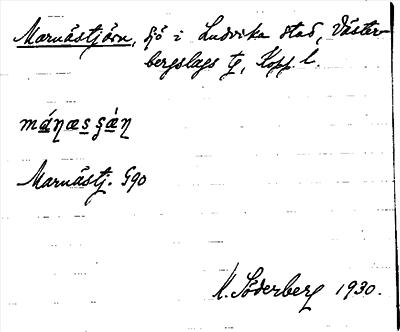 Marnästjärn, sjö i Ludvika stad, Väster-
bergslags tg, Kopp. l.
Marnästj. G90
K. Söderberg 1930.